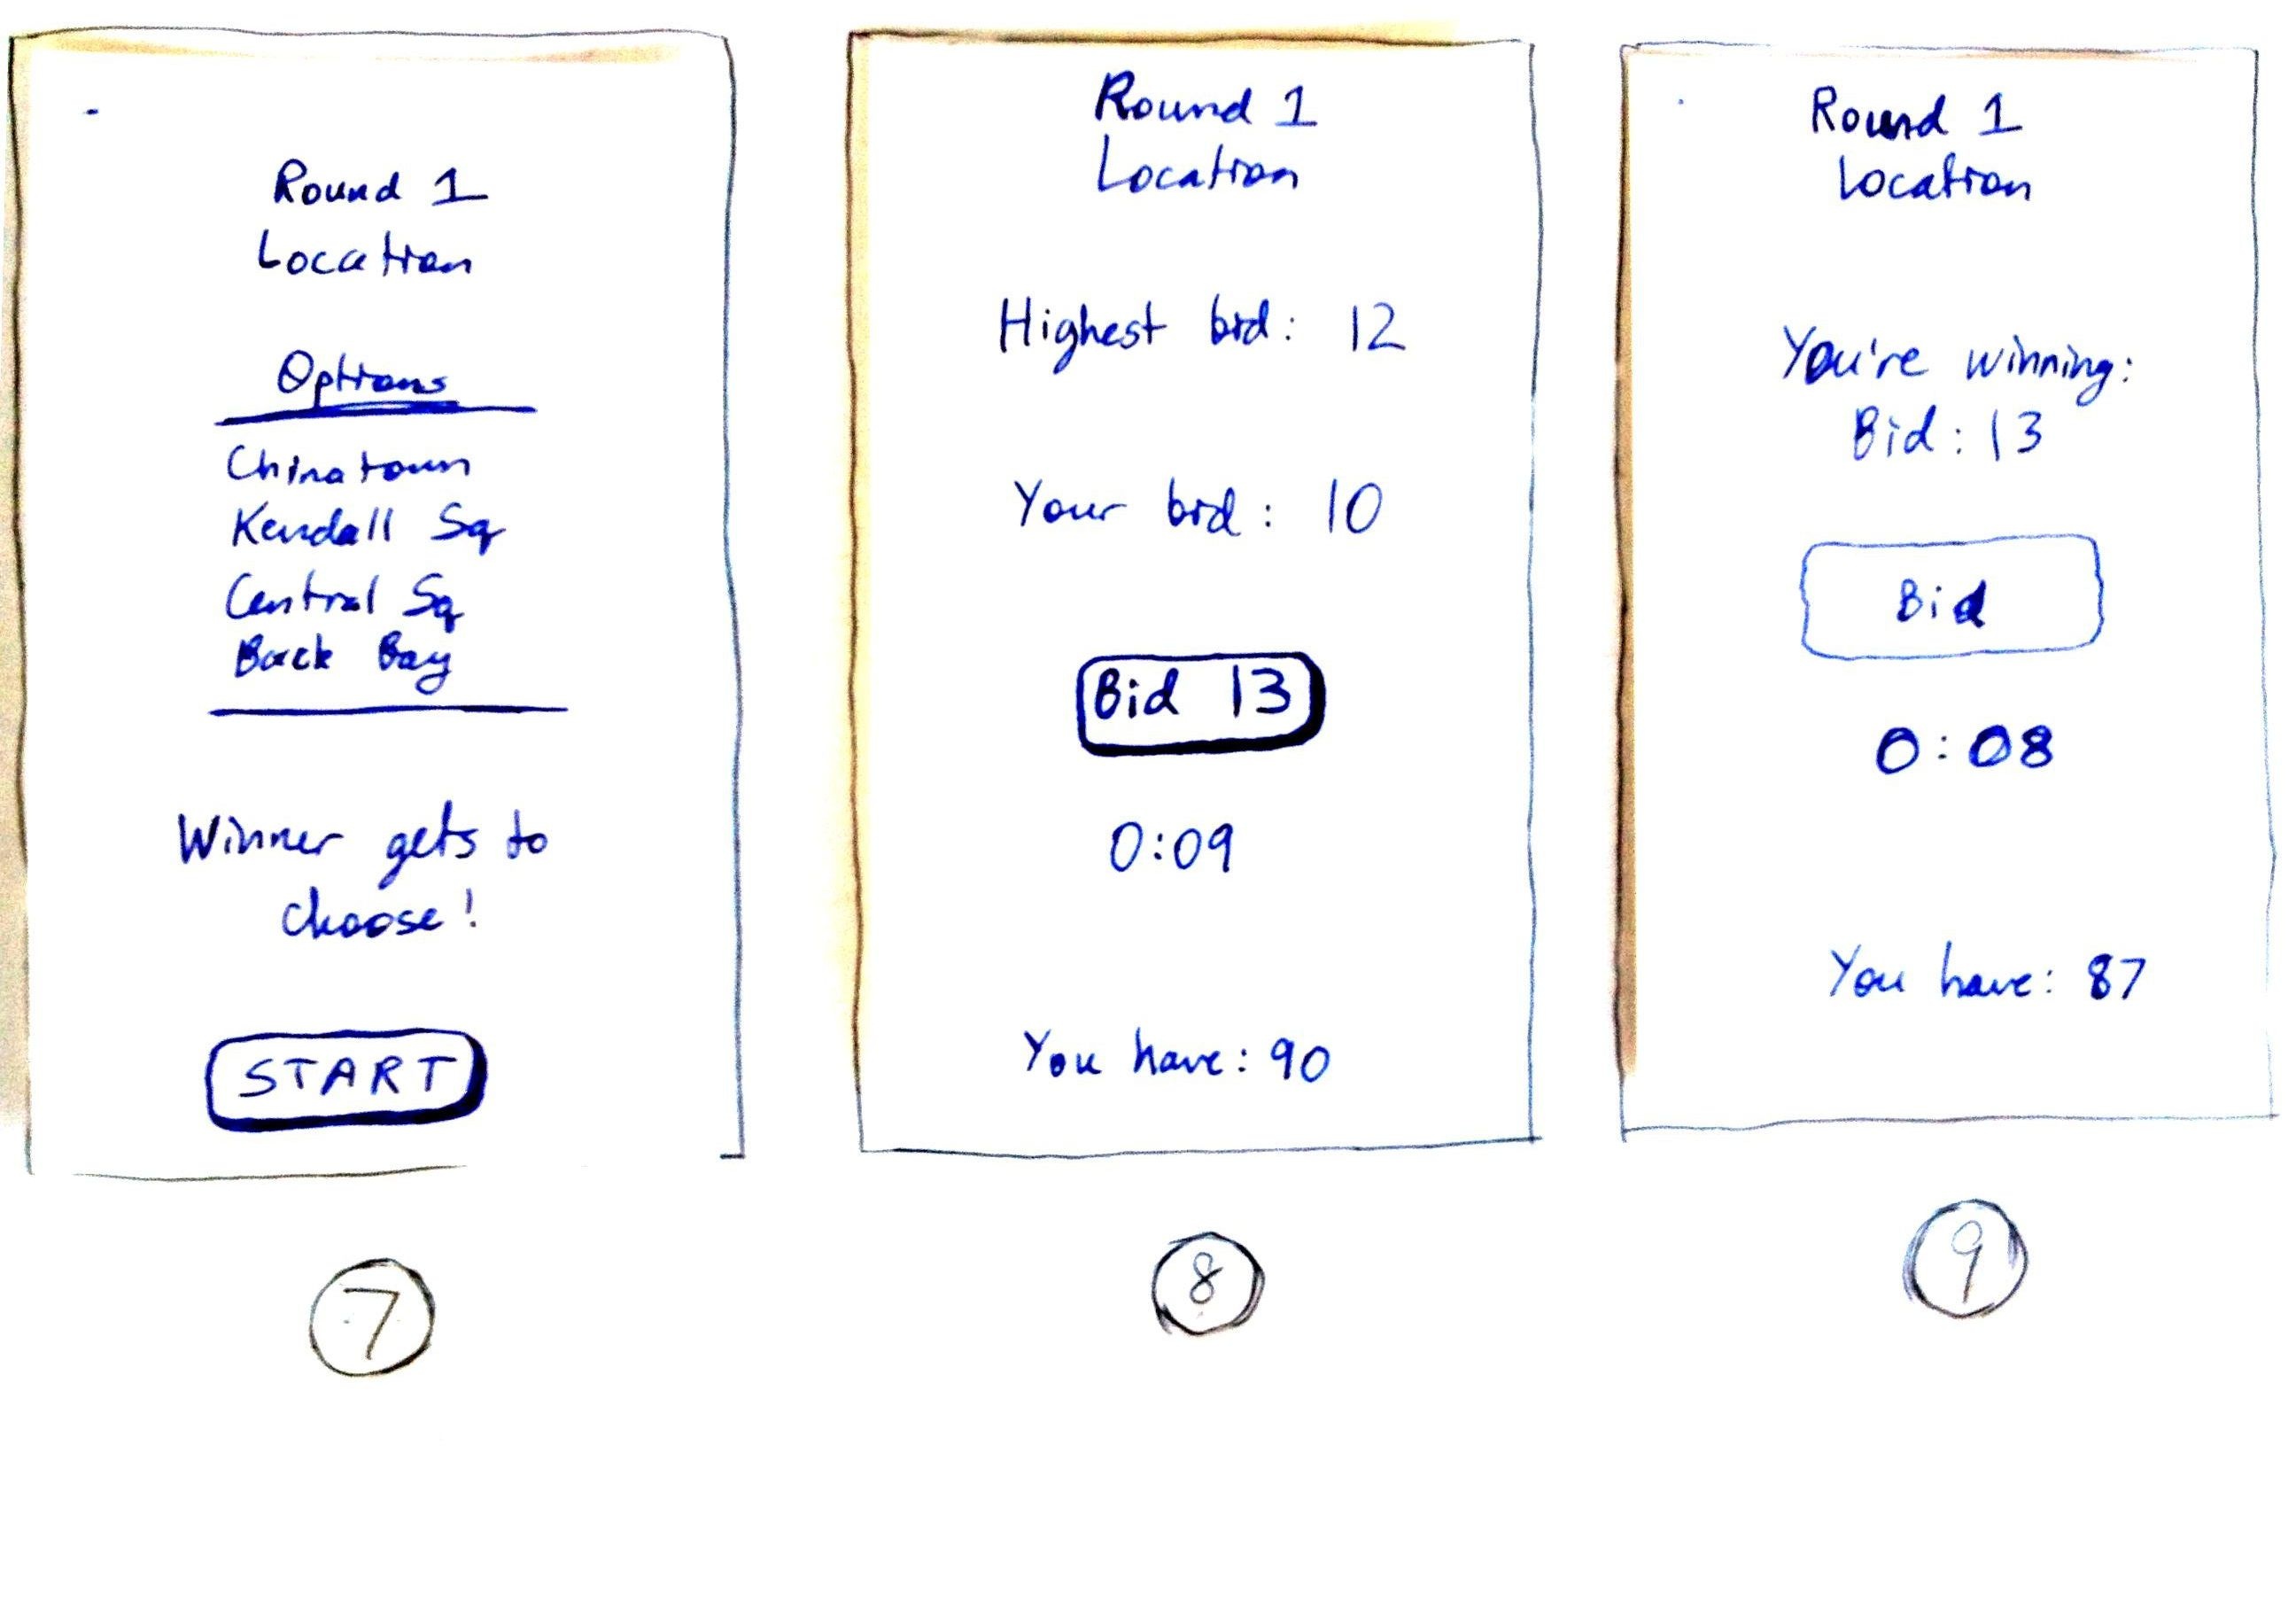 Round 1
Location
Options
Chinatown
Kendall Sq
Central Sq
Back Bay
Winner gets to
choose!
START
7
Round 1
Location
Highest bid: 12
Your bid: 10
Bid 13
0:09
You have: 90
8
Round 1
Location
You're winning:
Bid: 13
Bid
0:08
You have: 87
9